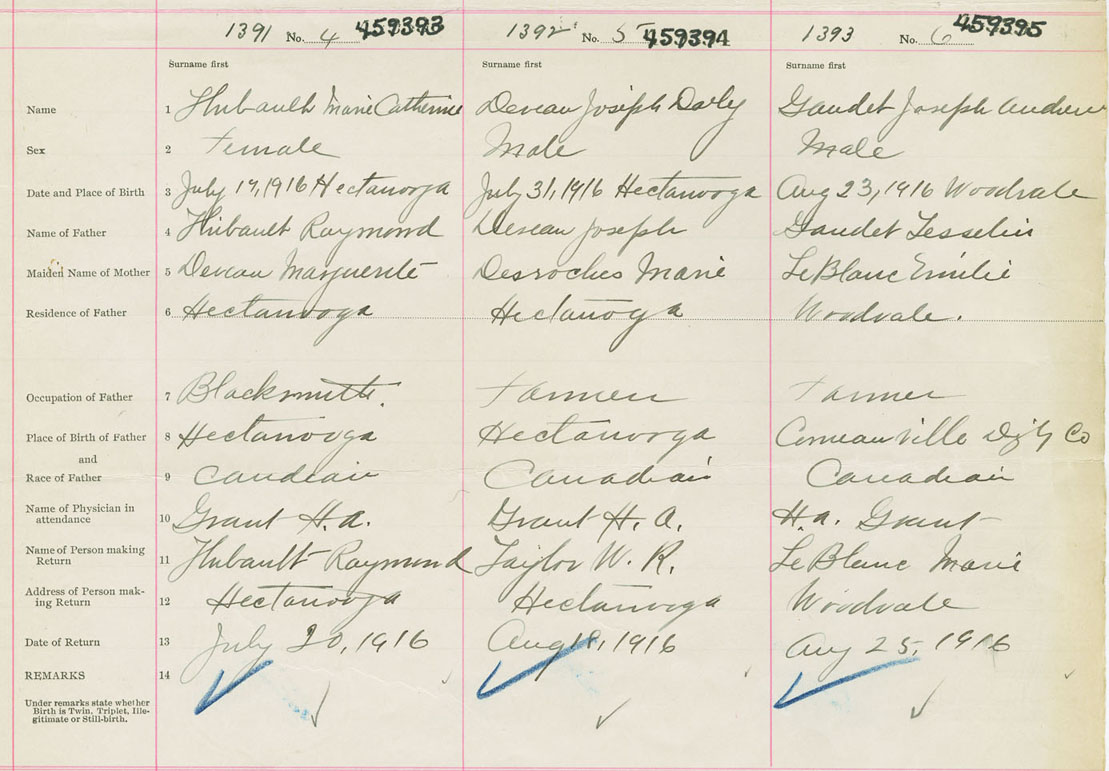 1391 No. 4 459393 1392 No. 5 459394 1393 No. 6 459395
Surname first Surname first Surname first
Name 1 Thibault Marie Catherine Deveau Joseph Gaudet Joseph Andrew
Sex 2 Female Male Male
Date and Place of Birth 3 July 1916 Hectanooga July 31, 1916 Hectanooga Aug 23, 1916 Woodvale
Name of Father 4 Thibault Raymond Deveau Joseph Gaudet
Maiden Name of Mother 5 Deveau Marguerite Desroches Marie LeBlanc Emilie
Residence of Father 6 Hectanooga Hectanooga Woodvale.
Occupation of Father 7 Blacksmith. Farmer Farmer
Place of Birth of Father 8 Hectanooga Hectanooga Comeauville Digby Co
and
Race of Father 9 Candeain Canadian Canadian
Name of Physician in
attendance 10 Grant H. A. Grant H. A. H. A. Grant
Name of Person making
Return 11 Thibault Raymond Taylor W. R. LeBlanc Marie
Address of Person mak-
ing Return 12 Hectanooga Hectanooga Woodvale
Date of Return 13 July 20, 1916 Aug 1916 Aug 25, 1916
REMARKS 14
Under remarks state whether
Birth is Twin, Triplet, Ille-
gitimate or Still-birth.